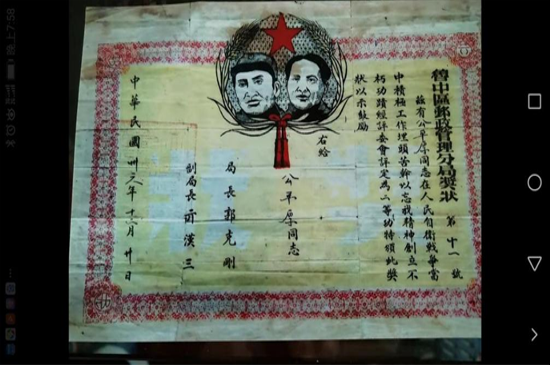 魯中區郵政管理分局奬狀
第十一號
茲有公平原同志在人民自衛戰爭當
中積極工作埋頭苦幹以忘我精神創立不
朽功蹟經評委會評定為二等功特頒此奬
狀以示鼓励
右給
公平原同志
局長郭克剛
副局長漢三
中華民國卅六年十二月廿日
晚上7:58